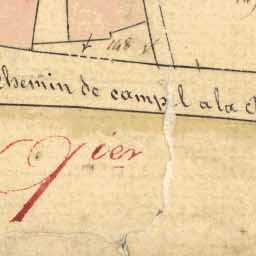 148
chemin de campel a la c
Gier